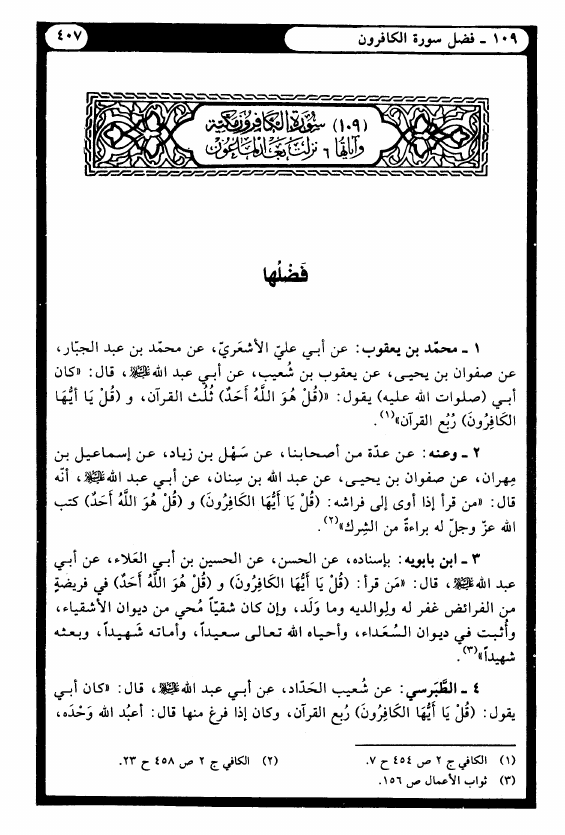 ١٠٩ ـ فضل سورة الكافرون
٤٠٧
(١٠٩) سورة الكافرون مكية
وآياتها ٦ نزلت بعد الماعون
فَضْلُها
١ ـ محمّد بن يعقوب: عن أبي عليّ الأشعَريّ، عن محمّد بن عبد الجبّار،
عن صفوان بن يحيى، عن يعقوب بن شُعيب، عن أبي عبد الله ﵇، قال: «كان
أبي (صلوات الله عليه) يقول: «(قُلْ هُوَ اللَّهُ أَحَدٌ) ثُلُث القرآن، و (قُلْ يَا أَيُّهَا
الكَافِرُونَ) رُبُع القرآن»(١).
٢ ـ وعنه: عن عدّة من أصحابنا، عن سَهْل بن زياد، عن إسماعيل بن
مِهران، عن صفوان بن يحيى، عن عبد الله بن سِنان، عن أبي عبد الله ﵇، أنّه
قال: «من قرأ إذا أوى إلى فراشه: (قُلْ يَا أَيُّهَا الكَافِرُونَ) و (قُلْ هُوَ اللَّهُ أَحَدٌ) كتب
الله عزّ وجلّ له براءةً من الشِرك»(٢).
٣ ـ ابن بابويه: بإسناده، عن الحسن، عن الحسين بن أبي العَلاء، عن أبي
عبد الله ﵇، قال: «مَن قرأ: (قُلْ يَا أَيُّهَا الكَافِرُونَ) و (قُلْ هُوَ اللَّهُ أَحَدٌ) في فريضةٍ
من الفرائض غفر له ولوالديه وما وَلَد، وإن كان شقيّاً مُحي من ديوان الأشقياء،
وأُثبت في ديوان السُعَداء، وأحياه الله تعالى سعيداً، وأماته شَهيداً، وبعثه
شهيداً»(٣).
٤ ـ الطَّبَرسي: عن شُعيب الحَدّاد، عن أبي عبد الله ﵇، قال: «كان أبي
يقول: (قُلْ يَا أَيُّهَا الكَافِرُونَ) رُبع القرآن، وكان إذا فرغ منها قال: أعبُد الله وَحْدَه،
(١) الكافي ج ٢ ص ٤٥٤ ح ٧. (٢) الكافي ج ٢ ص ٤٥٨ ح ٢٣.
(٣) ثواب الأعمال ص ١٥٦.